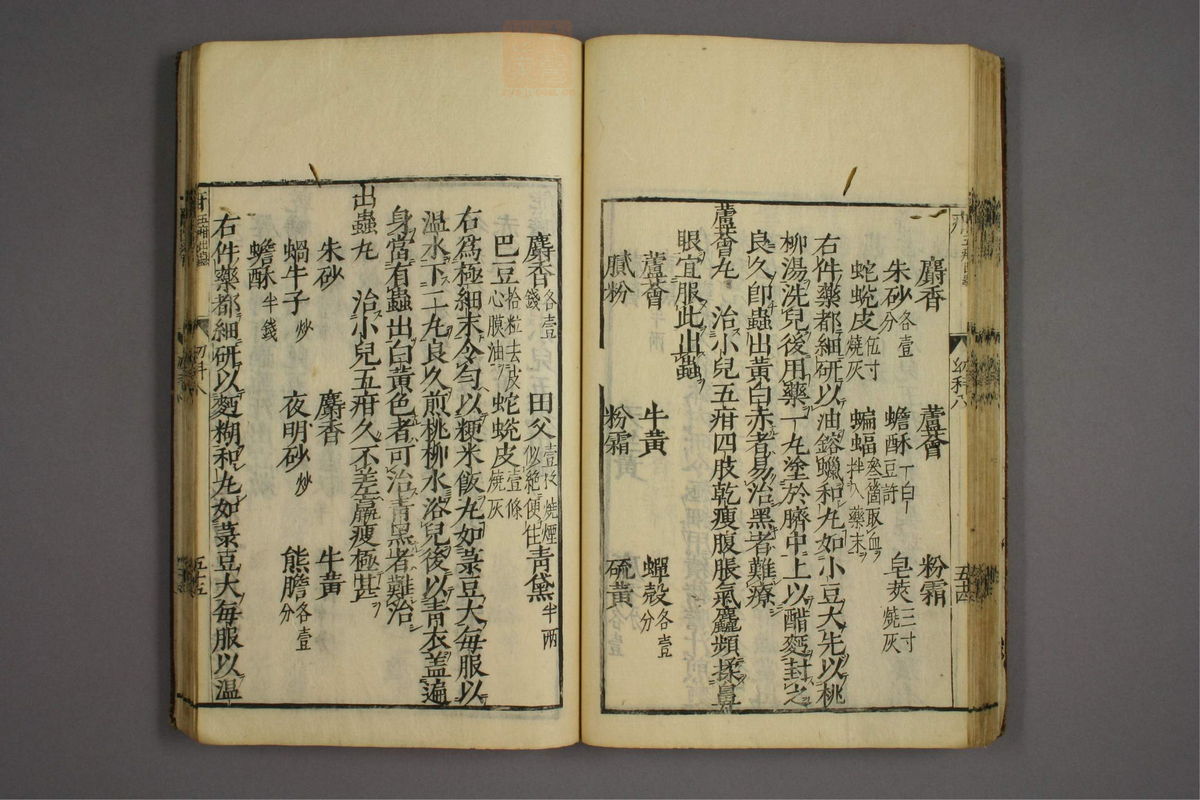 麝香 蘆薈 粉霜
朱砂各壹分 蟾酥一白豆許 皂莢三寸燒灰
蛇蛻皮伍寸燒灰 蝙蝠叁箇取血拌入藥末
右件藥都細研以油鎔蠟和丸如小豆大先以桃
柳湯洗兒後用藥一丸塗於臍中上以醋麪封之
良久卽蟲出黃白赤者易治黑者難療
蘆薈丸 治小兒五疳四肢乾瘦腹脹氣麤頻揉鼻
眼宜服此出蟲
蘆薈 牛黃 蟬殼各壹分
膩粉 粉霜 硫黃
麝香各壹錢 田父壹枚燒煙似絕便住 青黛半兩
巴豆拾粒去皮心膜油 蛇蛻皮壹條燒灰
右爲極細末令勻以粳米飯丸如菉豆大每服以
溫水下二丸良久煎桃柳水浴兒後以青衣盖遍
身當有蟲出白黃色者可治青黑者難治
出蟲丸 治小兒五疳久不差羸瘦極甚
朱砂 麝香 牛黃
蝸牛子炒 夜明砂炒 熊膽各壹分
蟾酥半錢
右件藥都細研以麪糊和丸如菉豆大每服以溫
幼科八
五十五